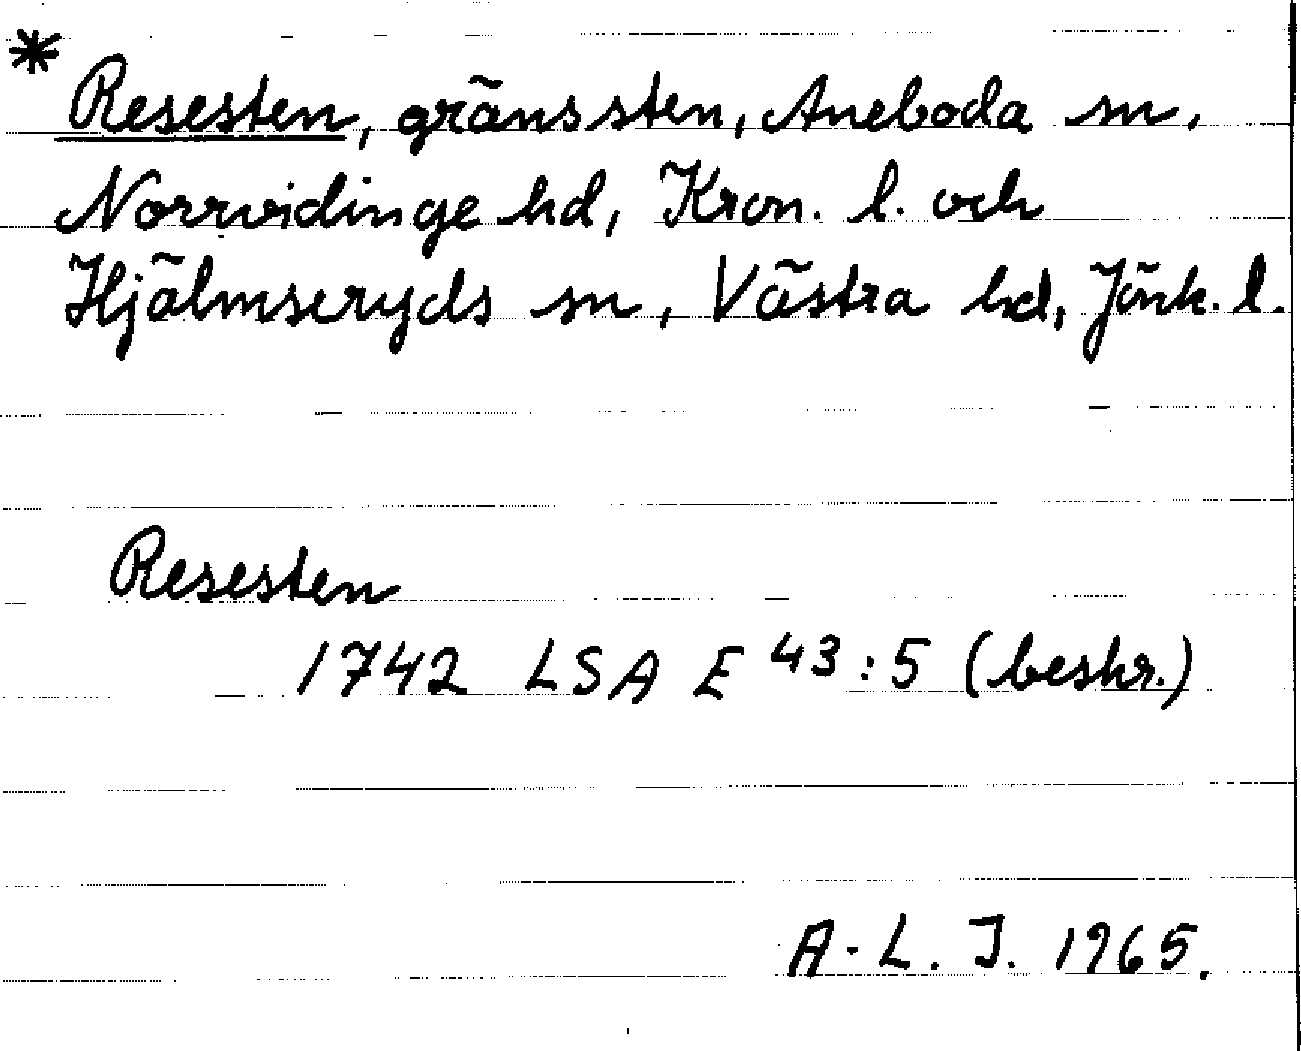 * Resesten, gränssten, Aneboda sn,
Norrvidinge hd, Kron. l. och
Hjälmseryds sn, Västra hd, Jönk. l.
Resesten
1742 LSA E 43:5 (beskr.)
A-L. J. 1965.